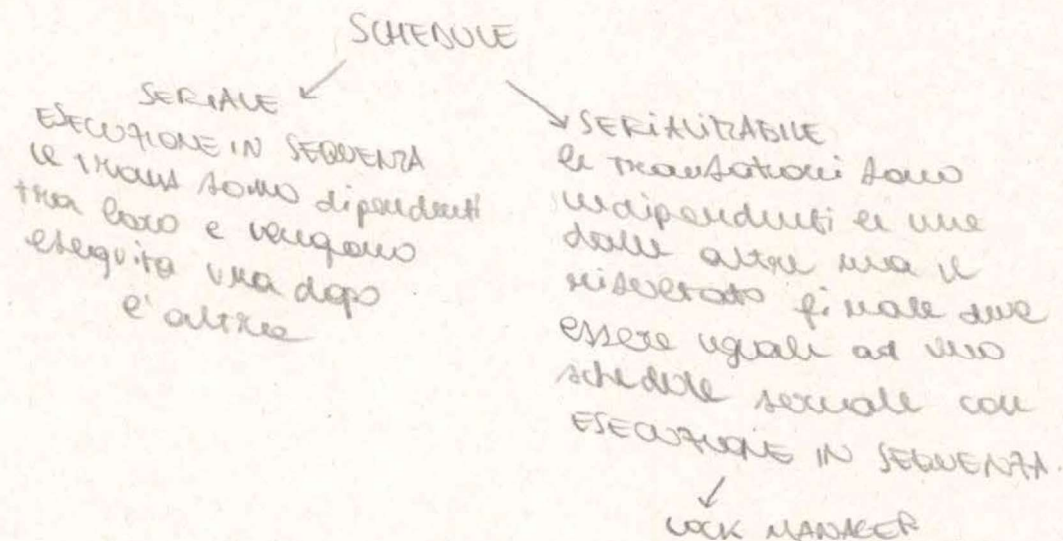 SCHEDULE
SERIALE
ESECUZIONE IN SEQUENZA
le trans sono dipendenti
tra loro e vengono
eseguita una dopo
l'altra
SERIALIZZABILE
le transazioni sono
indipendenti le une
dalle altre ma il
risultato finale deve
essere uguale ad uno
schedule seriale con
ESECUZIONE IN SEQUENZA.
LOCK MANAGER